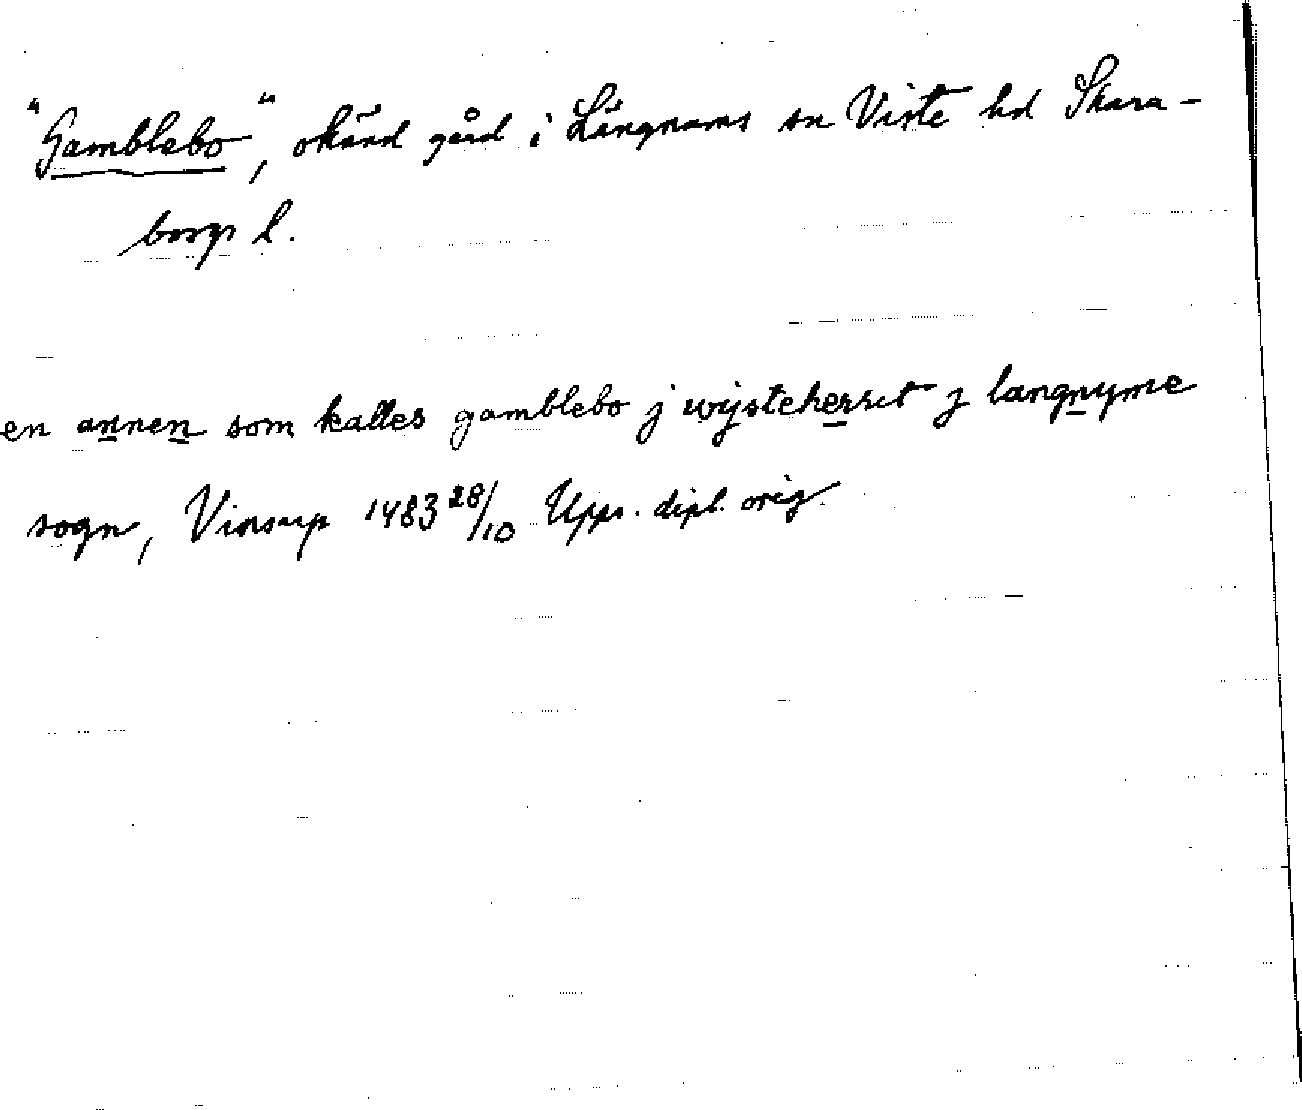 "Gamblebo", okänd gård i Längnams sn Viste hd Skara-
borgs l.
en annen som kalles gamblebo j wijsteherret j langnyme
sogn, Vinsarp 1483 28/10 Upps. dipl. orig